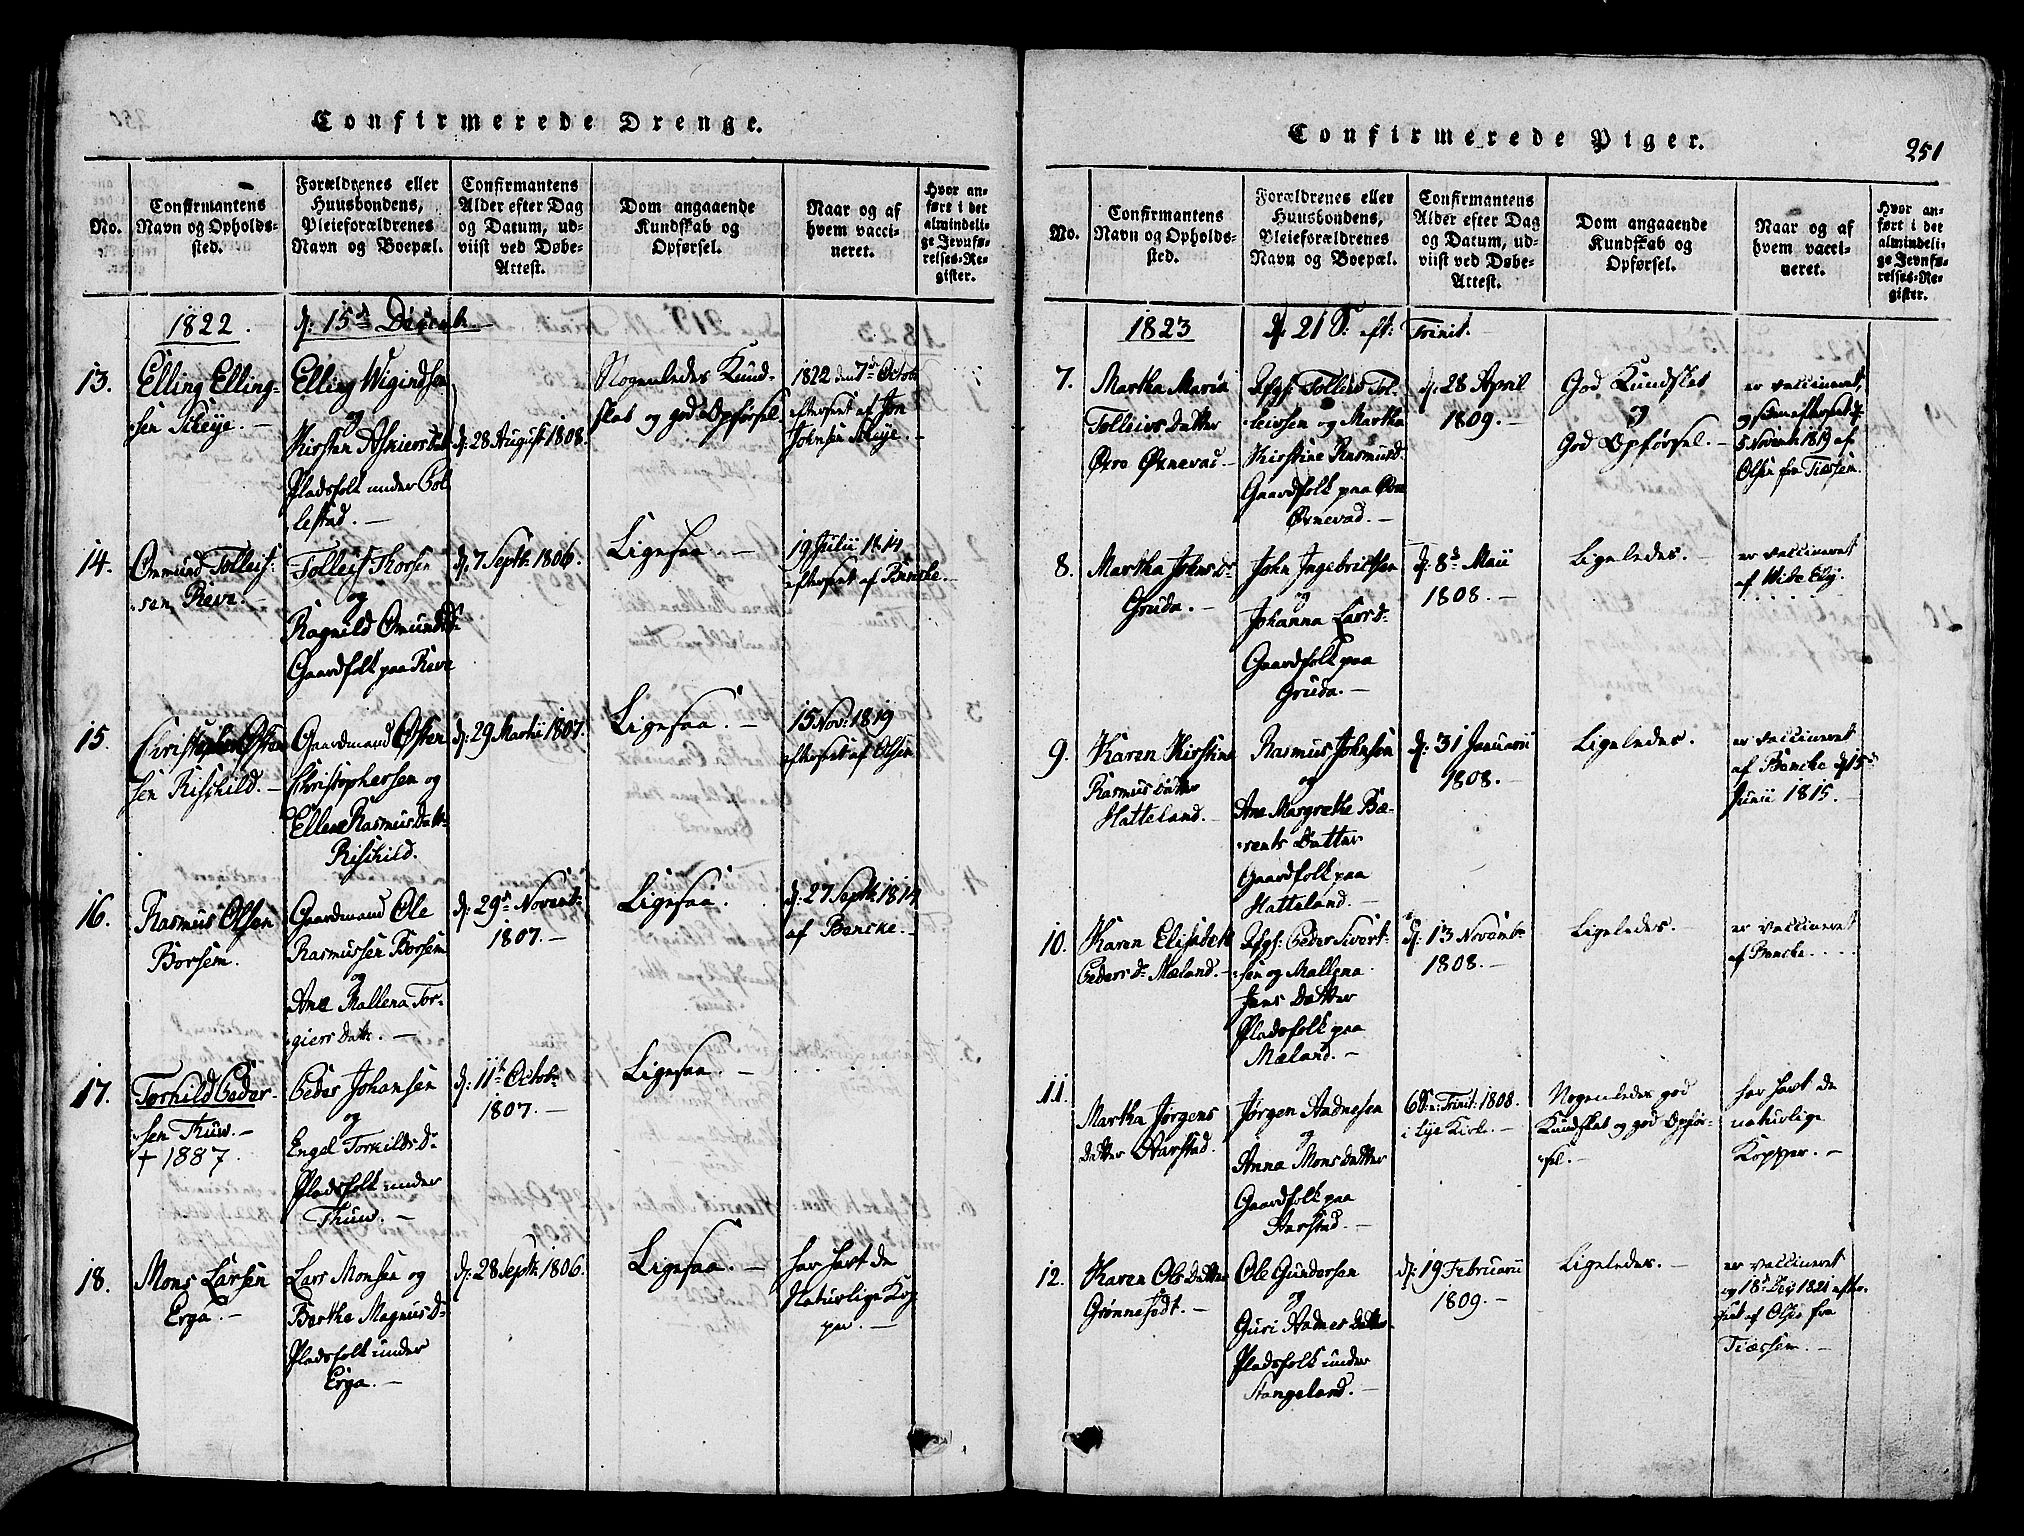 Confirmerede Drenge.
No.
Confirmantens
Navn og Opholds-
sted.
Forældrenes eller
Huusbondens,
Pleieforældrenes
Navn og Boepæl.
Confirmantens
Alder efter Dag
og Datum, ud-
viist ved Døbe-
Attest.
Dom angaaende
Kundskab og
Opførsel.
Naar og af
hvem vacci-
neret.
Hvor an-
ført i det
almindeli-
ge Jevnfø-
relses-Re-
gister.
1822. d: 15d Decemb.
13.
Elling Elling-
sen
Elling Wigindsen
og
Kirsten
Pladsfolk under Bol
lestad.
d: 28 August 1808.
Nogenledes Kund-
skab og god Opførsel.
1822 den 7d Octob
efterseet af Jon
Johnsen
14.
Ommund Tolleif-
sen Reve.
Tolleif Thorsen
og
Ragnild Omundsd
Gaardfolk paa Reve
d: 7 Septb: 1806.
Ligesaa.
19 Julii 1814
efterseet af Bencke.
15.
Christopher Østen
sen Risskild.
Gaardmand Østen
Christophersen og
Ellen Rasmusdatt
Risskild.
d: 29 Martii 1807.
Ligesaa.
15 Nov: 1819
efterseet af Olsen
16.
Rasmus Olsen
Borsem.
Gaardmand Ole
Rasmussen Borsem
og
Ane Mallena Tor-
giers Datt.
d: 29d Novemb:
1807.
Ligesaa.
d: 27 Septb: 1814
af Bencke.
17.
Torkild Peder-
sen Thuw.
+ 1887.
Peder Johansen
og
Engel Torkildsd
Pladsfolk under
Thuw.
d: 11te Octob:
1807.
Ligesaa.
18.
Mons Larsen
Erga.
Lars Monsen og
Berthe Magnusd
Pladsfolk under
Erga.
d: 28 Septb: 1806.
Ligesaa.
har havt de
Naturlige Kop
per.
Confirmerede Piger.
251
No.
Confirmantens
Navn og Opholds-
sted.
Forældrenes eller
Huusbondens,
Pleieforældrenes
Navn og Boepæl.
Confirmantens
Alder efter Dag
og Datum, ud-
viist ved Døbe-
Attest.
Dom angaaende
Kundskab og
Opførsel.
Naar og af
hvem vacci-
neret.
Hvor an-
ført i det
almindeli-
ge Jevnfø-
relses-Re-
gister.
1823 d: 21 S: eft: Trinit.
7.
Martha Maria
Tolleivs Datter
Øxnevad
Tolleiv Tol-
leivsen og Martha
Kirstine Rasmusd.
Gaardfolk paa
Øxnevad.
d: 28 April
1809.
God Kundskab
og
God Opførsel.
er vaccineret,
og siden efterseet d:
5 Novemb 1819 af
Olsen fra Tiæssem.
8.
Martha Johnsd
Gruda.
John Ingebrictsen
og
Johanna Larsd
Gaardfolk paa
Gruda.
d: 8d Maii
1808.
Ligeledes.
er vaccineret
af Wideröy.
9.
Karen Kirstine
Rasmus Datter
Hatteland.
Rasmus Johnsen
og
Ane Margrethe Bæ-
rents Datter
Gaardfolk paa
Hatteland.
d: 31 Januarii
1808.
Ligeledes.
er vaccineret
af Bencke d: 15d
Junii 1815.
10.
Karen Elisabeth
Pedersd Mæland.
Peder Sivert-
sen og Mallena
Jens Datter
Pladsfolk paa
Mæland.
d: 13 Novemb:
1808.
Ligeledes.
er vaccineret
af Bencke
11.
Martha Jørgens
Datter Aarstad.
Jørgen Aadnesen
og
Anna Mons Datter
Gaardfolk paa
Aarstad.
6 S: e: Trinit: 1808.
i Lye Kirke.
Nogenledes god
Kundskab og god Opfør-
sel.
har havt de
naturlige
Kopper.
12.
Karen Ols Datter
Grønnesødt.
Ole Gundersen
og
Guri Aadnes Datter
Pladsfolk under
Stangeland.
d: 19 Februarii
1809.
Ligeledes.
er vaccineret
og 18d Dec 1821 efter-
seet af Olsen fra
Tiæssem.